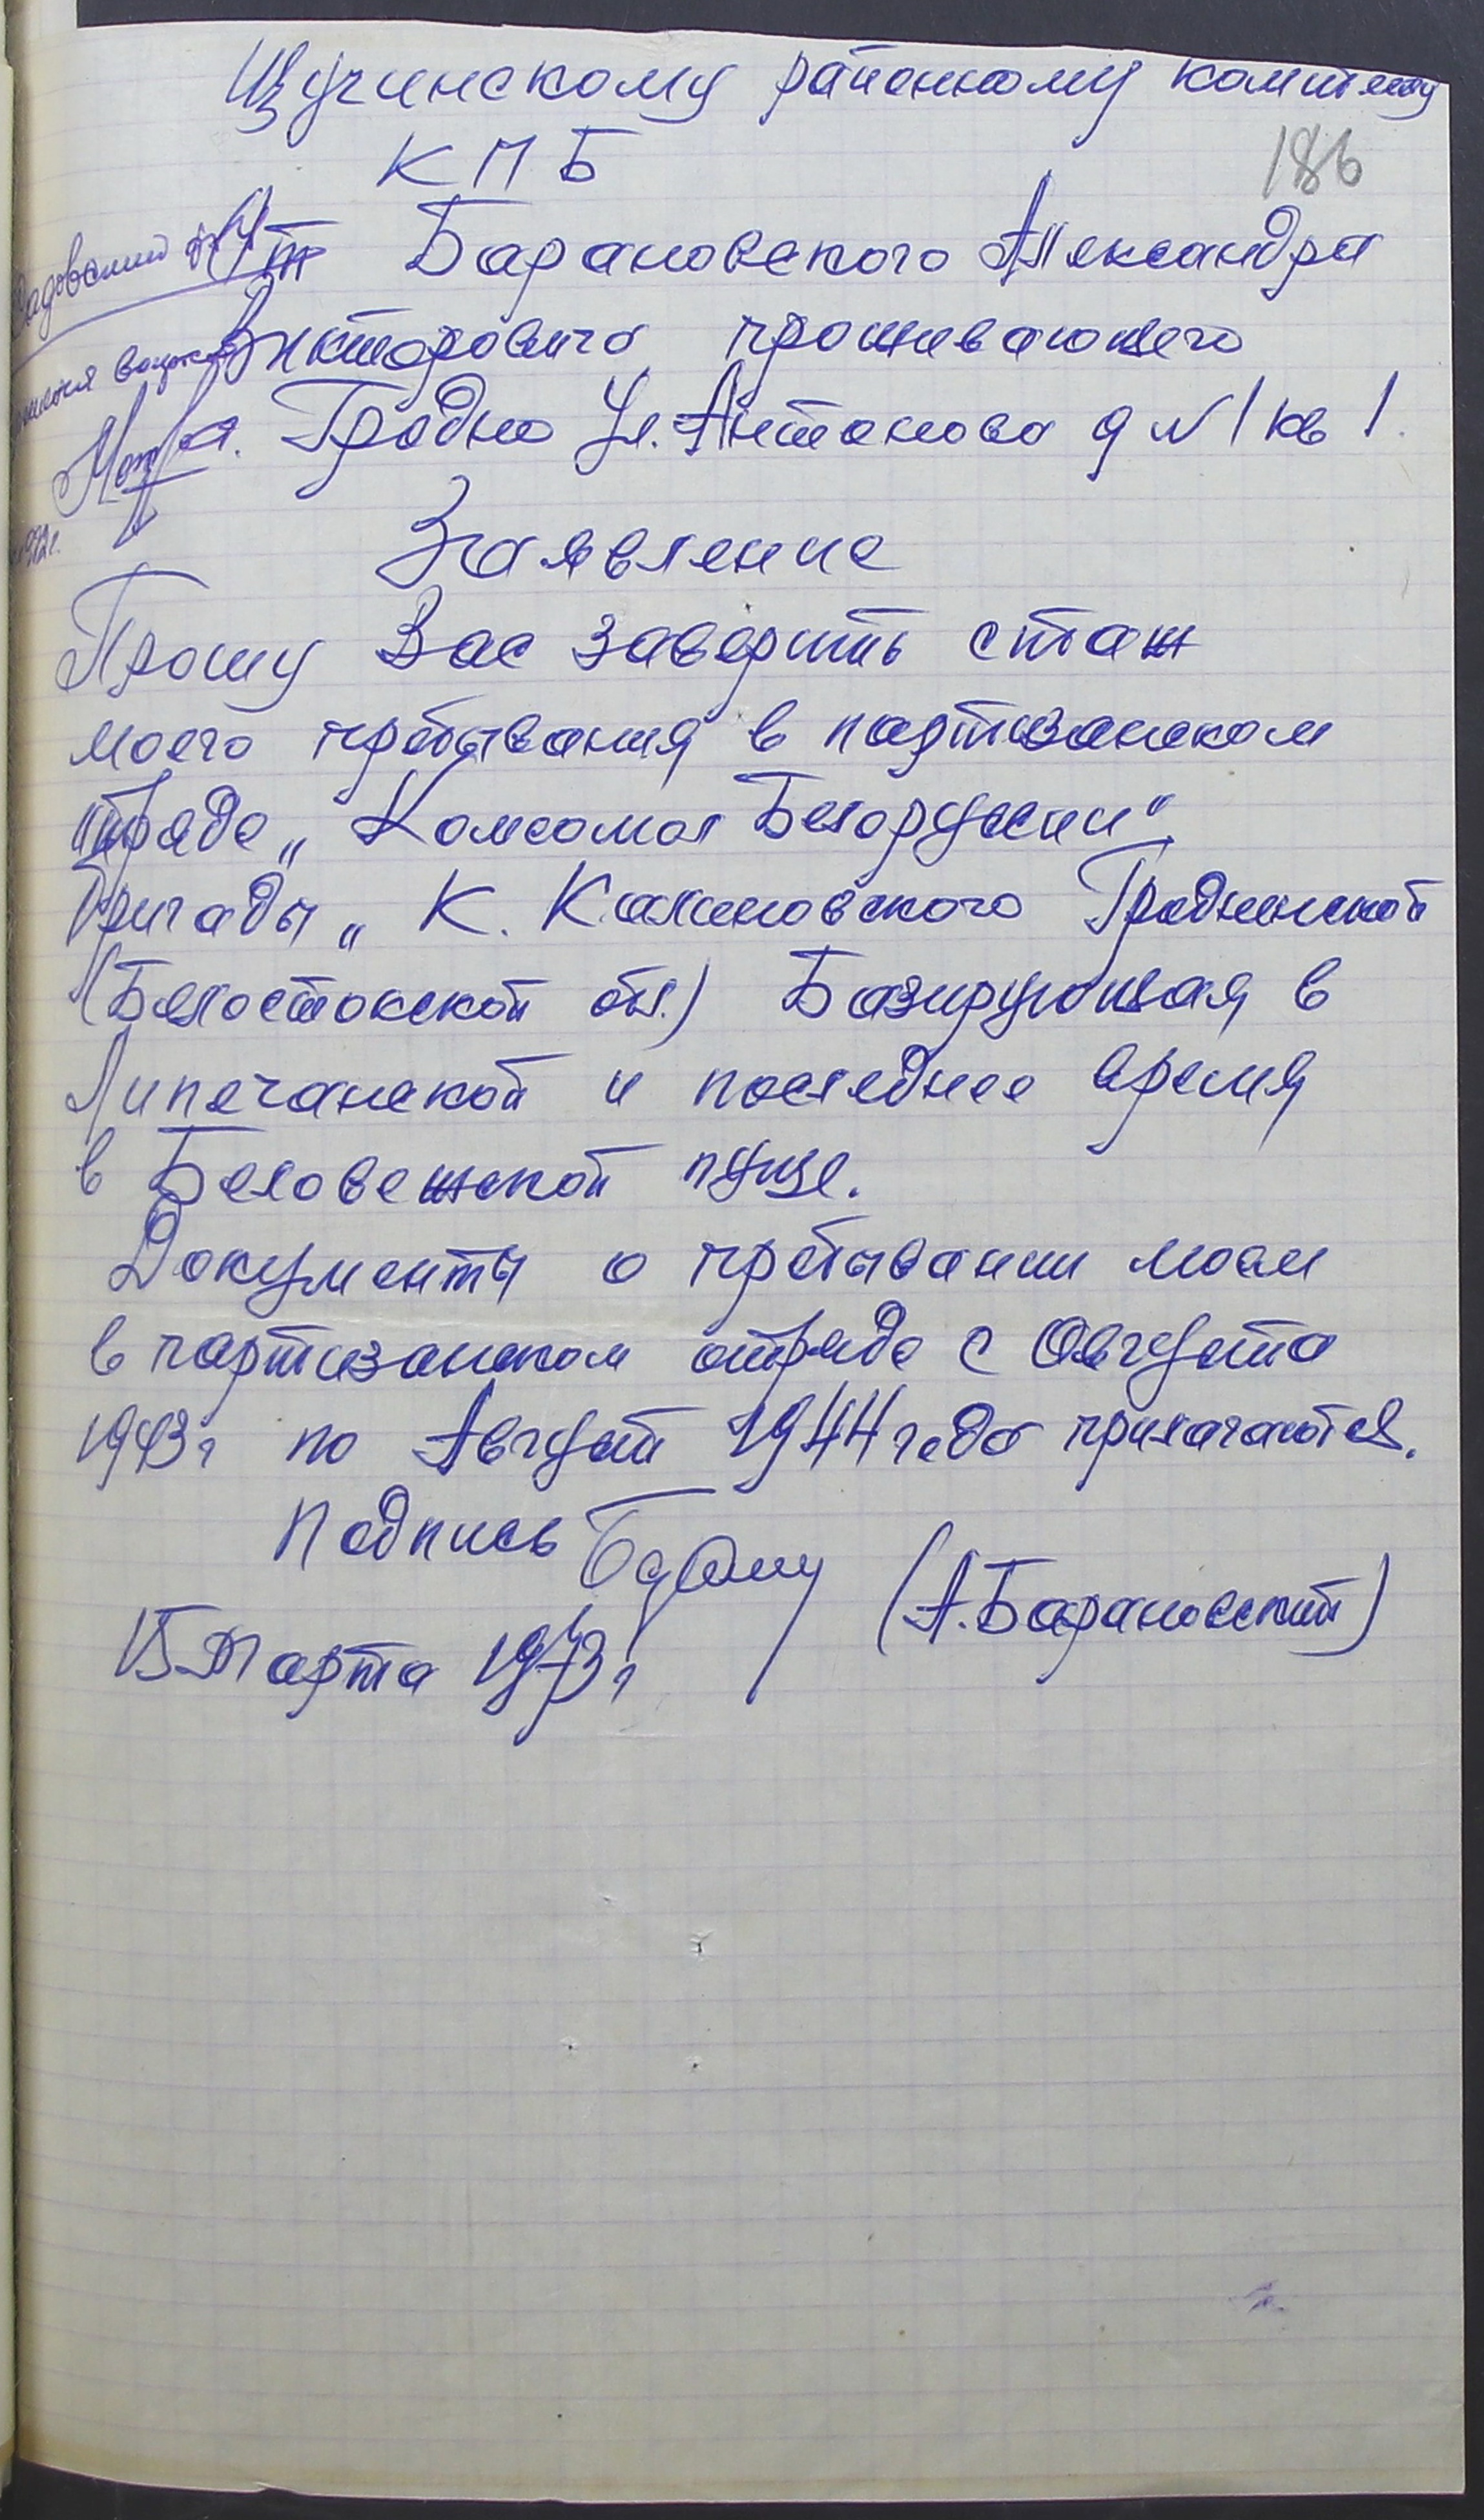 Щучинскому районному комитету
КПБ
186
От Барановского Александра
Викторовича проживающего
г. Гродно Ул. Антонова д №1 кв 1.
Заявление
Прошу Вас заверить стаж
моего пребывания в партизанском
отряде „Комсомол Белоруссии"
бригады „К. Калиновского Гродненской
(Белостокской обл.) Базирующая в
Липечанской и последнее время
в Беловежской пуще.
Документы о пребывании моем
в партизанском отряде с Августа
1943г по Август 1944 года прилагаются.
Подпись
(А. Барановский)
15 Марта 1973г